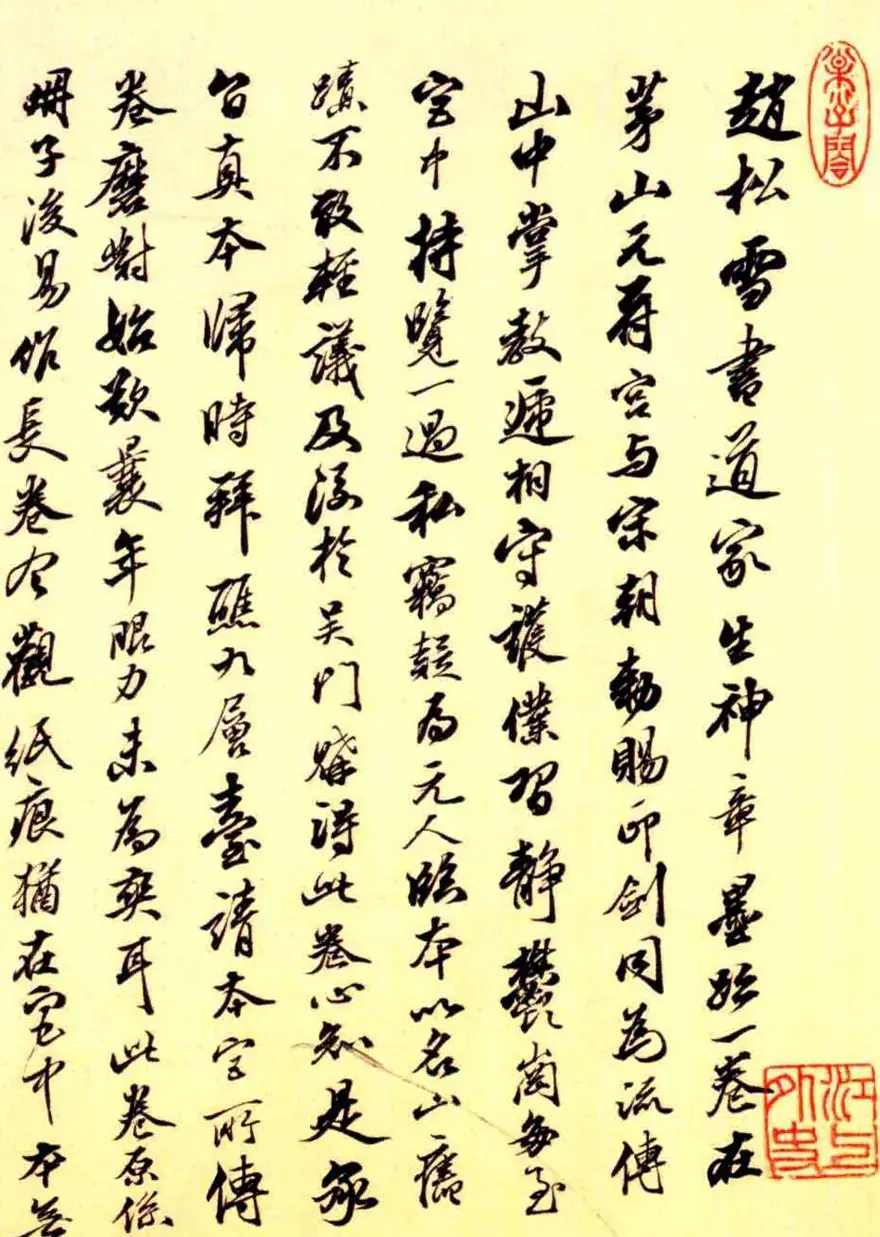 趙松雪書道家生神章墨妙一卷在
茅山元符宮与宋朝勅賜印劍同為流傳
山中掌教遞相守護僕習静鬱崗每至
宮中持覽一過私竊疑為元人臨本以名山舊
蹟不敢輕議及後於吴门購得此卷心知是
真本歸時拜醮九層臺請本宮所傳
卷磨對始歎曩年眼力未為爽耳此卷原係
冊子後易作長卷今觀紙痕猶在宮中本
江上外史